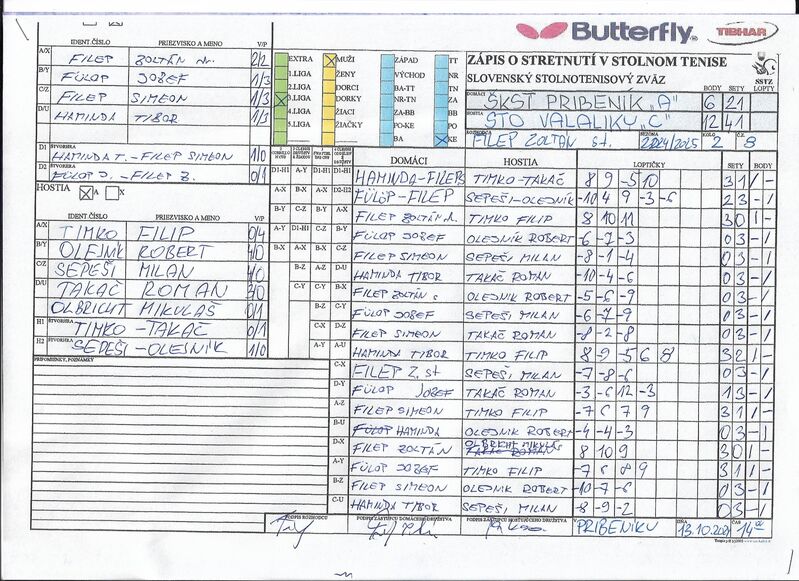 Butterfly
TIBHAR
IDENT.ČÍSLO PRIEZVISKO A MENO V/P
A/X FILEP ZOLTÁN 2/2
B/Y FÜLÖP JOZEF 1/3
C/Z FILEP SIMEON 1/3
D/U HAMINDA TIBOR 1/3
D1 ŠTVORHRA HAMINDA T. - FILEP SIMEON 1/0
D2 FÜLÖP J. - FILEP Z. 0/1
HOSTIA A X
IDENT. ČÍSLO PRIEZVISKO A MENO V/P
A/X TIMKO FILIP 0/4
B/Y OLEJNÍK ROBERT 4/0
C/Z SEPEŠI MILAN 4/0
D/U TAKAČ ROMAN
OLBRICHT MIKULÁŠ 0/1
H1 ŠTVORHRA TIMKO - TAKAČ 0/1
H2 ŠTVORHRA SEPEŠI - OLEJNÍK 1/0
PRIPOMIENKY, POZNÁMKY
EXTRA MUŽI ZÁPAD TT
1.LIGA ŽENY VÝCHOD NR
2.LIGA DORCI BA-TT TN
3.LIGA DORKY NR-TN ZA
4.LIGA ŽIACI ZA-BB BB
5.LIGA ŽIAČKY PO-KE PO
BA KE
ZÁPIS O STRETNUTÍ V STOLNOM TENISE
SLOVENSKÝ STOLNOTENISOVÝ ZVÄZ
SSTZ
BODY SETY LOPTY
DOMÁCI ŠKST PRIBENÍK „A“ 6 21
HOSTIA STO VALALIKY „C“ 12 41
ROZHODCA FILEP ZOLTÁN st. SEZÓNA 2024/2025 KOLO 2 Č. 8
DOMÁCI HOSTIA LOPTIČKY SETY BODY
D1-H1 A-Y D1-H1 D1-H1 HAMINDA-FILEP S TIMKO-TAKAČ 8 9 -5 10 3 1 / -
A-X B-X A-X FÜLÖP-FILEP SEPEŠI-OLEJNÍK -10 4 9 -3 -6 2 3 - /
FILEP ZOLTÁN TIMKO FILIP 8 10 11 3 0 / -
FÜLÖP JOZEF OLEJNÍK ROBERT -6 -7 -3 0 3 - /
FILEP SIMEON SEPEŠI MILAN -8 -1 -4 0 3 - /
D-U HAMINDA TIBOR TAKAČ ROMAN -10 -4 -6 0 3 - /
FILEP ZOLTÁN OLEJNÍK ROBERT -5 -6 -9 0 3 - /
FÜLÖP JOZEF SEPEŠI MILAN -6 -7 -9 0 3 - /
FILEP SIMEON TAKAČ ROMAN -8 -2 -8 0 3 - /
HAMINDA TIBOR TIMKO FILIP 8 9 -5 6 8 3 2 / -
C-X FILEP Z. st SEPEŠI MILAN -7 -8 -6 0 3 - /
D-Y FÜLÖP JOZEF TAKAČ ROMAN -3 -6 12 -3 1 3 - /
A-Z FILEP SIMEON TIMKO FILIP -7 6 7 9 3 1 / -
B-U HAMINDA OLEJNÍK ROBERT -4 -4 -3 0 3 - /
D-X FILEP ZOLTÁN OLBRICHT MIKULÁŠ 8 10 9 3 0 / -
A-Y FÜLÖP JOZEF TIMKO FILIP -7 6 8 9 3 1 / -
B-Z FILEP SIMEON OLEJNÍK ROBERT -10 -7 -6 0 3 - /
C-U HAMINDA TIBOR SEPEŠI MILAN -8 -9 -2 0 3 - /
PODPIS ROZHODCU PODPIS ZÁSTUPCU DOMÁCEHO DRUŽSTVA PODPIS ZÁSTUPCU HOSŤUJÚCEHO DRUŽSTVA V PRIBENÍKU DŇA 13.10.2024 ČAS 14 00